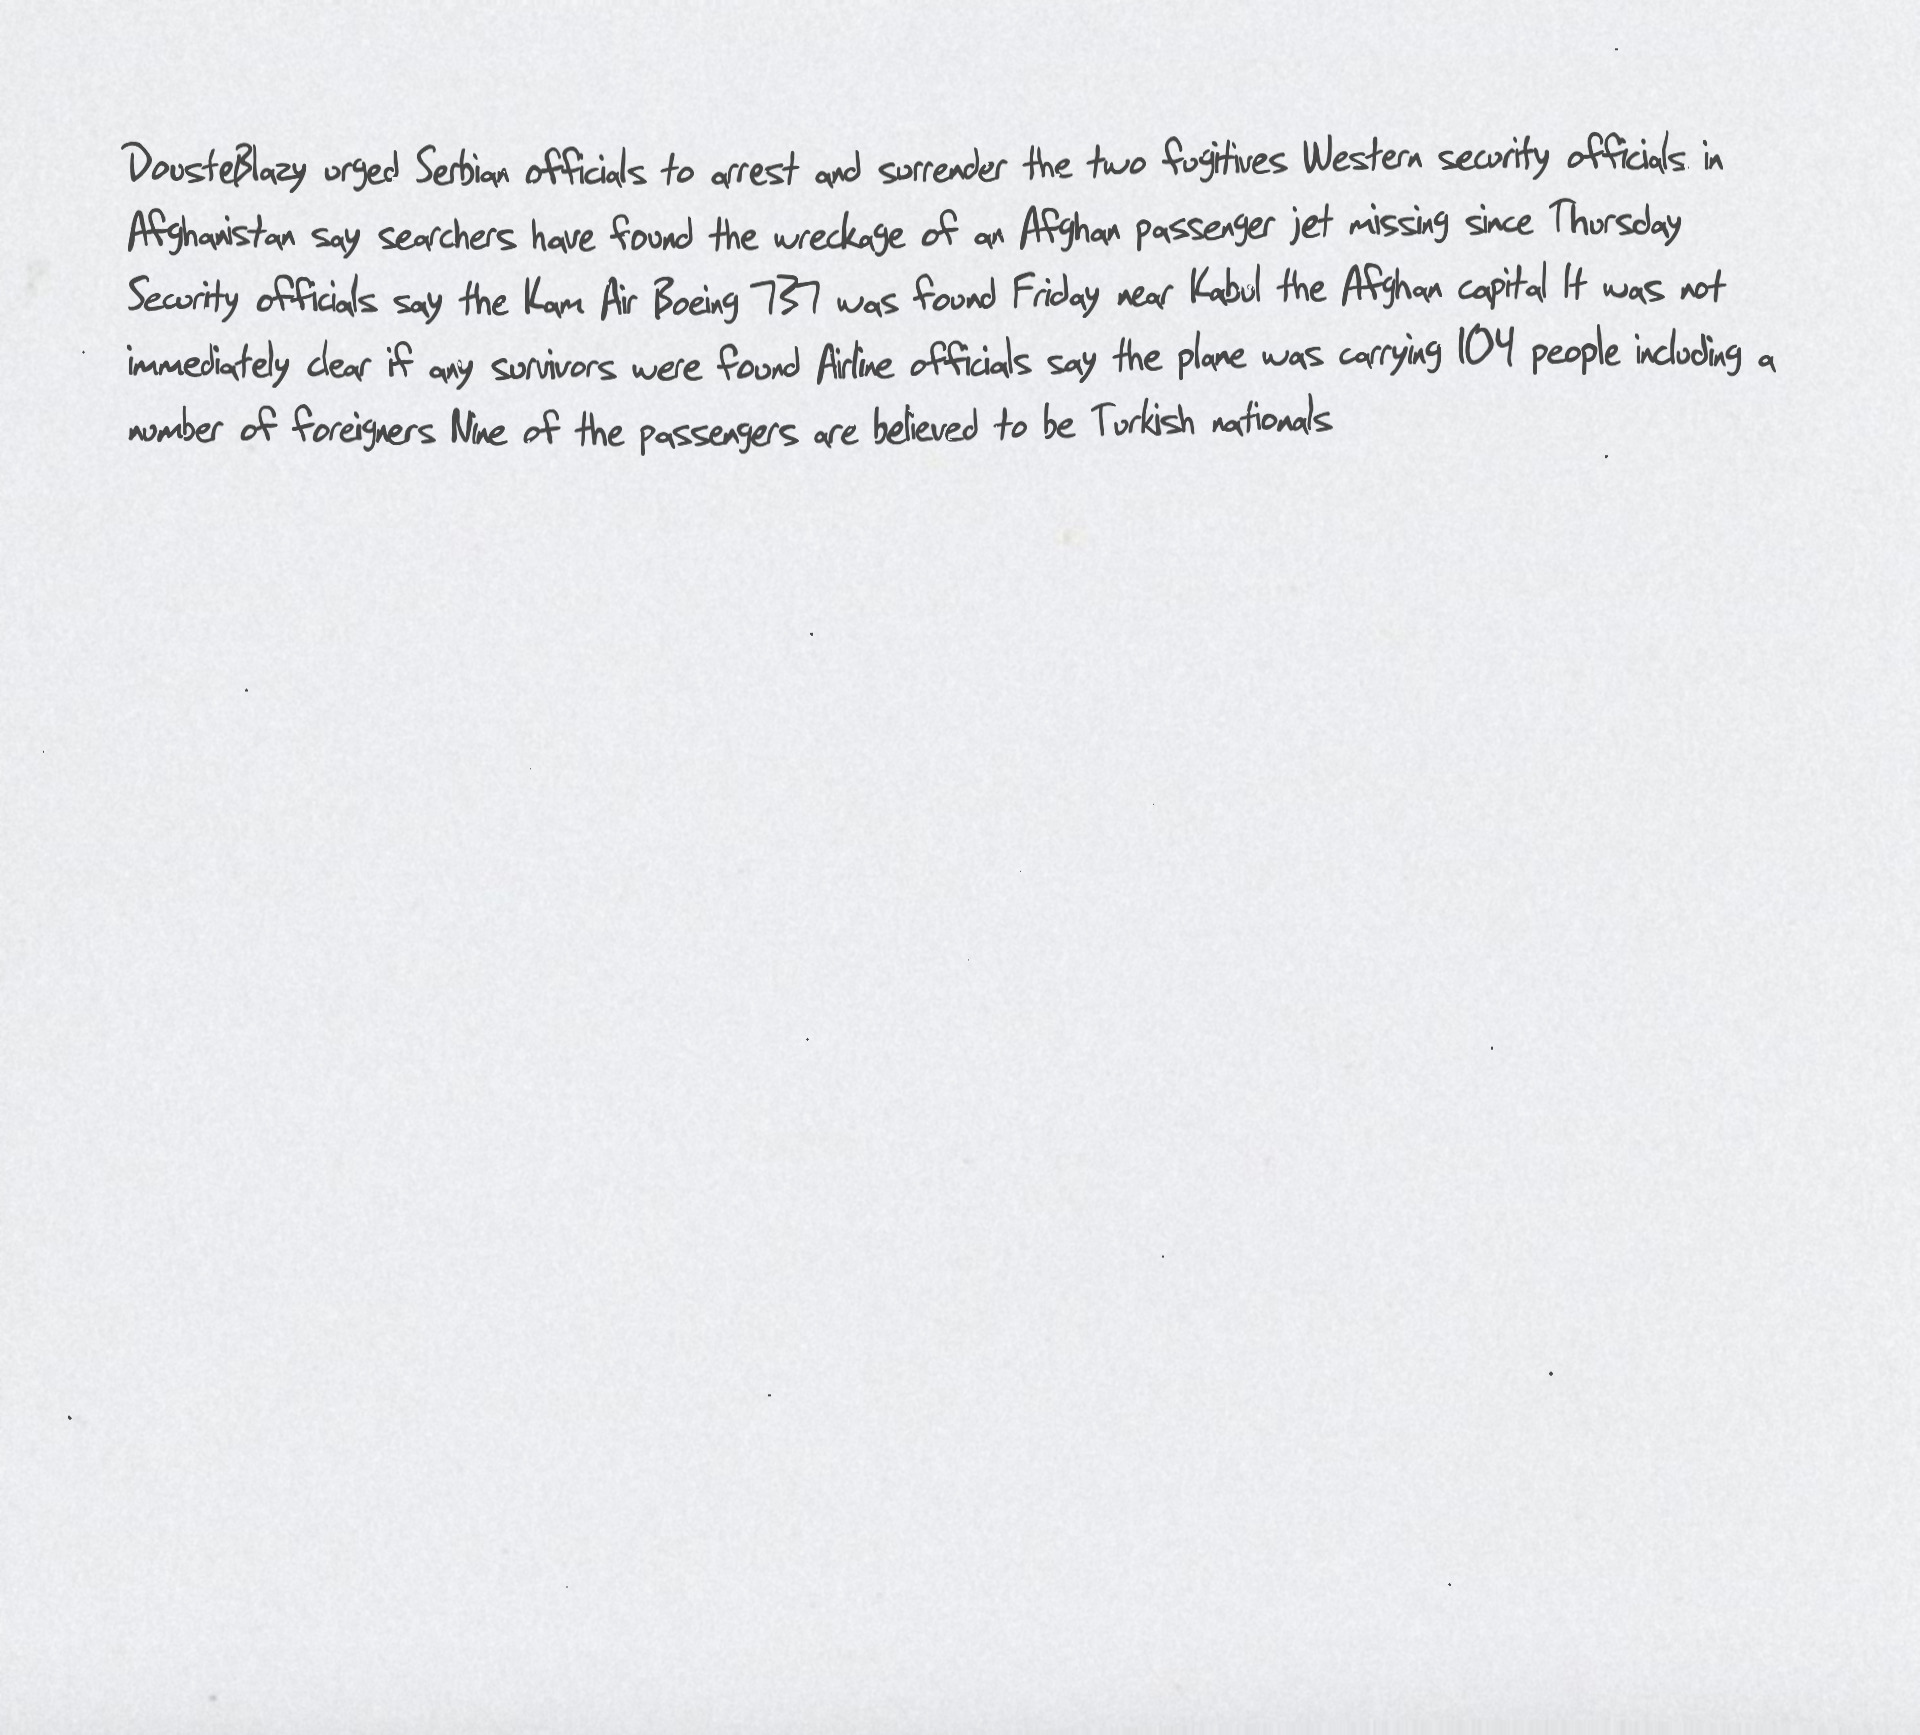 DousteBlazy urged Serbian officials to arrest and surrender the two fugitives Western security officials in
Afghanistan say searchers have found the wreckage of an Afghan passenger jet missing since Thursday
Security officials say the Kam Air Boeing 737 was found Friday near Kabul the Afghan capital It was not
immediately clear if any survivors were found Airline officials say the plane was carrying 104 people including a
number of foreigners Nine of the passengers are believed to be Turkish nationals